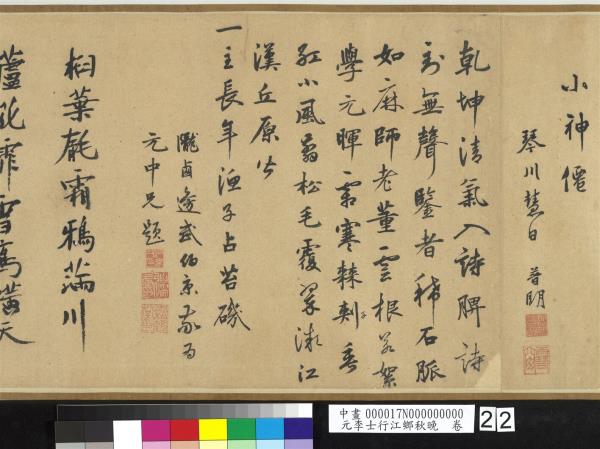 小神僊
琴川慧日 普明
乾坤清氣入詩脾詩
到無聲鑒者稀石脈
如麻師老董雲根若絮
學元暉霜寒棘刺垂
紅小風 松毛覆翠微江
漢丘原
一主長年漁子占苔磯
隴鹵邊武伯京敬為
元中兄題
桕葉 霜鴉滿川
蘆花 雪 天
中畫 000017N000000000
元李士行江鄉秋晚 卷
22